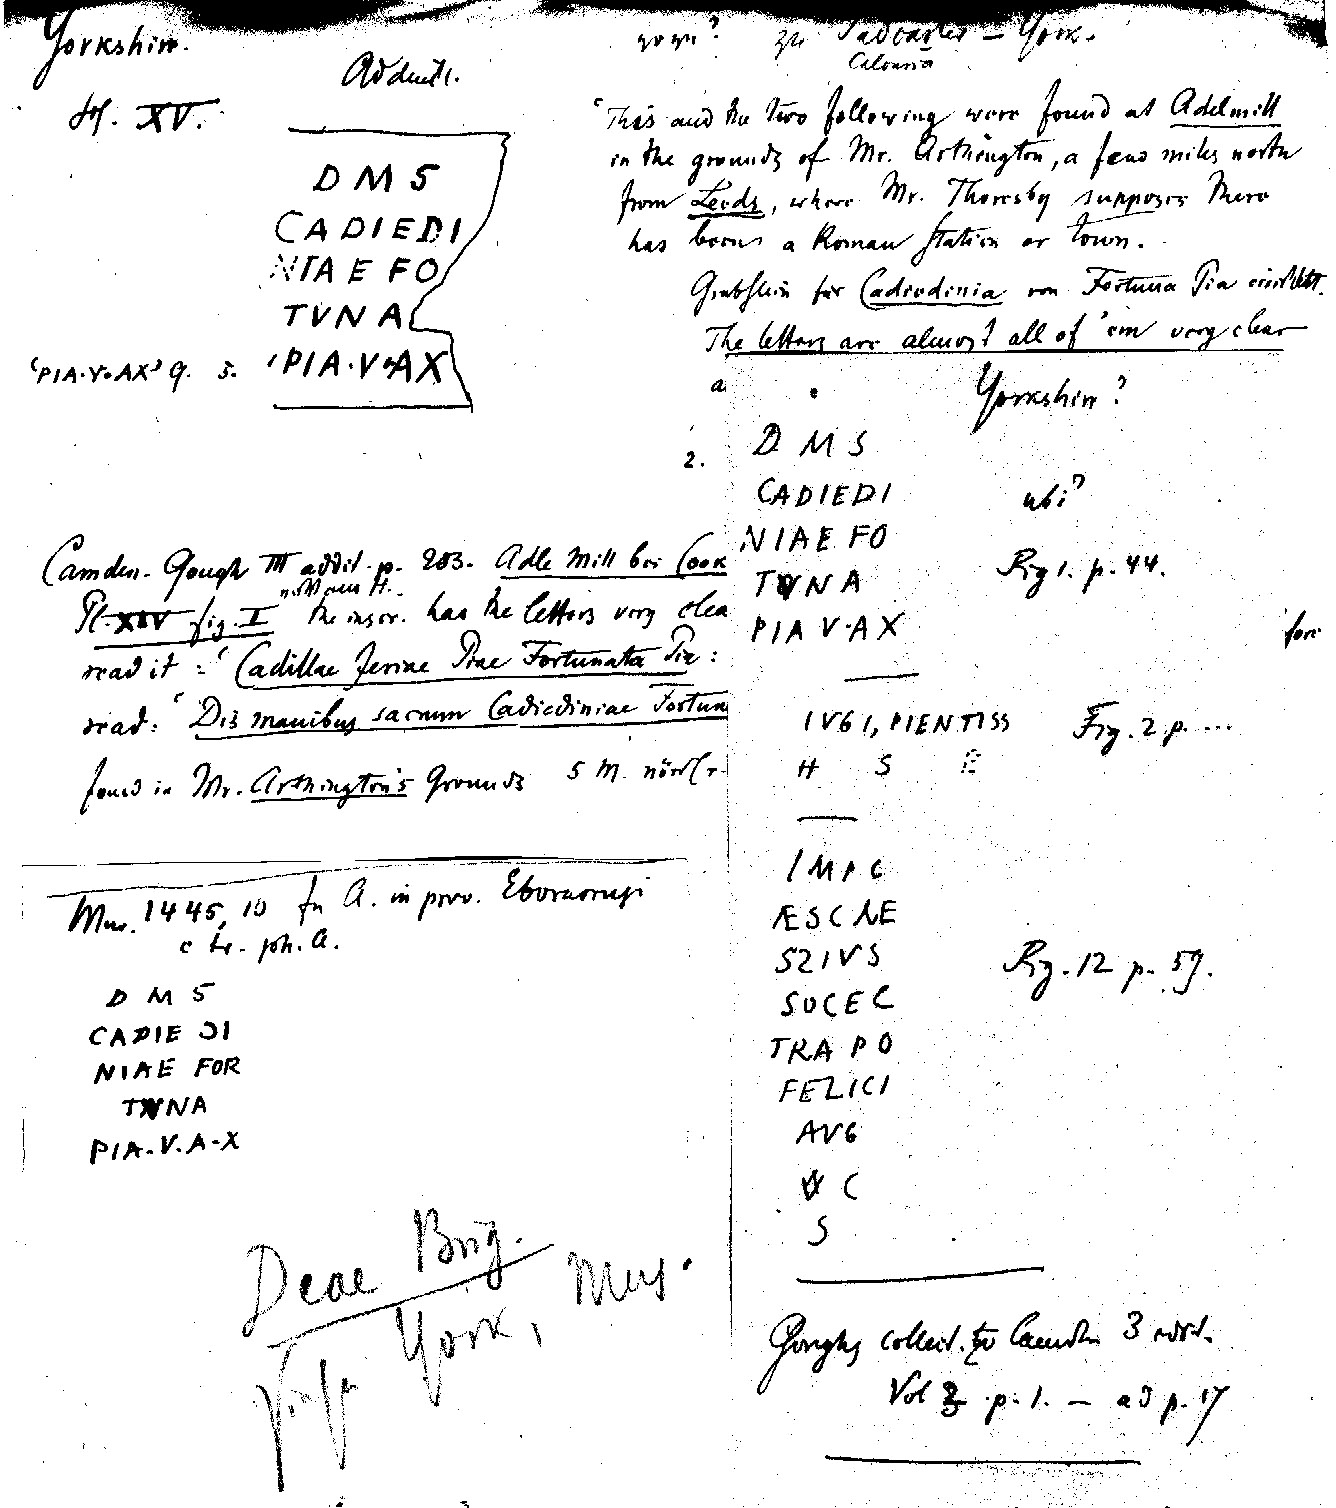 Yorkshire.
Addenda.
Pl. XV.
D M S
CADIEDI
NIAE FO
TVNA
'PIA.V.AX' 9. 5. 'PIA.V.AX
Camden. Gough III addit. p. 203. Adle Mill bei Cook
Pl. XIV fig. I the inscr. has the letters very clea
read it = 'Cadillae Piae Fortunata Pia:
read: 'Dis manibus sacrum Cadiediniae Fortun
found in Mr. Arthington's Grounds 5 M.
Mur. 1445, 10 A. in prov.
D M S
CADIE DI
NIAE FOR
TVNA
PIA.V.A-X
Deae Brig.
York, Mus.
zu Tadcaster – York.
Calcaria
"This and the two following were found at Adelmill
in the grounds of Mr. Arthington, a few miles north
from Leeds, where Mr. Thoresby supposes there
has been a Roman Station or town.
Grabstein für Cadiedinia von Fortuna Pia errichtet.
The letters are almost all of 'em very clear
a
Yorkshire?
2.
D M S
CADIEDI ubi?
NIAE FO
Fig 1. p. 44.
TVNA
PIA V.AX
IVGI, PIENTISS Fig. 2 p. ...
H S E
IMP C
ÆSCNE
SZIVS Fig. 12 p. 59.
SOCEC
TRAPO
FELICI
AVG
C
S
Goughs collect. to Camden 3 edit.
Vol 3 p. 1. – ad p. 17